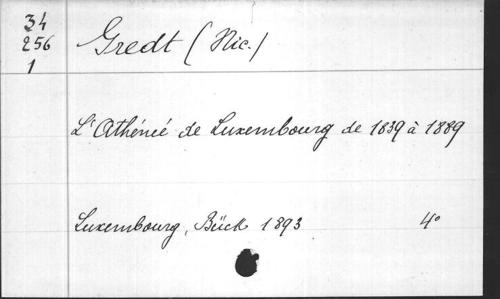 34
256
1
Gredt (Nic.)
L'Athénée de Luxembourg de 1839 à 1889
Luxembourg, Bück 1893 4°